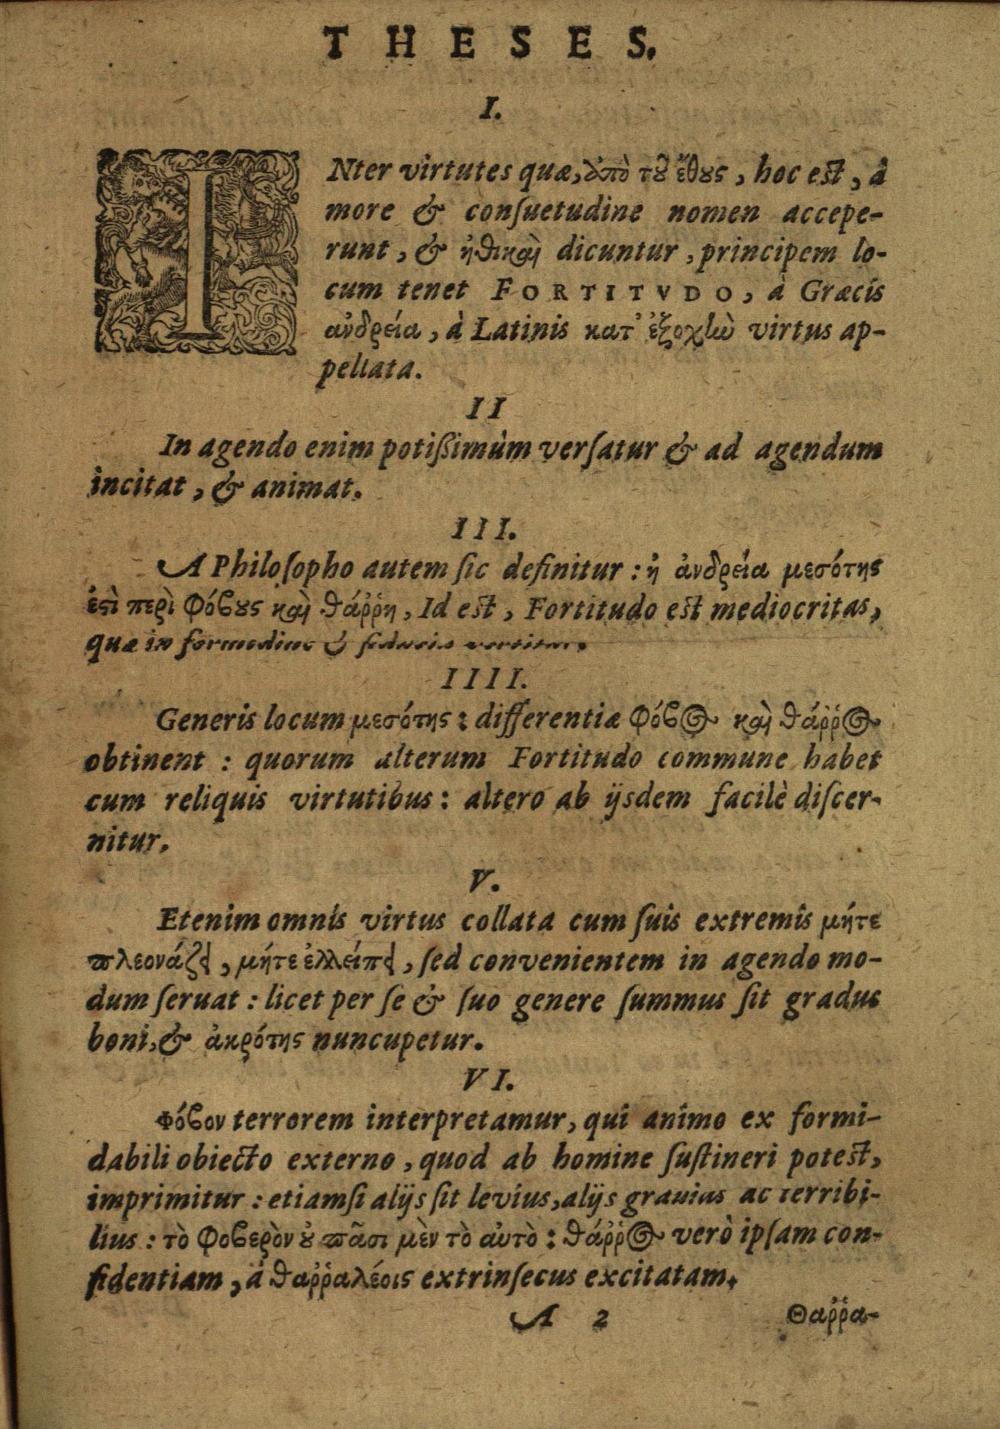 THESES.
I.
INter virtutes quæ, ἀπὸ τοῦ ἔθους, hoc est, à
more & consuetudine nomen accepe-
runt, & ἠθικαὶ dicuntur, principem lo-
cum tenet FORTITVDO, à Græcis
ἀνδρεία, à Latinis κατ' ἐξοχὴν virtus ap-
pellata.
II
In agendo enim potißimùm versatur & ad agendum
incitat, & animat.
III.
A Philosopho autem sic definitur: ἡ ἀνδρεία μεσότης
ἐστὶ περὶ φόβους καὶ θάῤῥη, Id est, Fortitudo est mediocritas,
quæ in formidine & fiducia vertitur.
IIII.
Generis locum μεσότης: differentiæ φόβος καὶ θάῤῥος
obtinent: quorum alterum Fortitudo commune habet
cum reliquis virtutibus: altero ab ijsdem facilè discer-
nitur.
V.
Etenim omnis virtus collata cum suis extremis μήτε
πλεονάζει, μήτε ἐλλείπει, sed convenientem in agendo mo-
dum seruat: licet per se & suo genere summus sit gradus
boni, & ἀκρότης nuncupetur.
VI.
Φόβον terrorem interpretamur, qui animo ex formi-
dabili obiecto externo, quod ab homine sustineri potest,
imprimitur: etiamsi alijs sit levius, alijs grauius ac terribi-
lius: τὸ φοβερὸν οὐ πᾶσι μὲν τὸ αὐτὸ: θάῤῥος verò ipsam con-
fidentiam, à θαῤῥαλέοις extrinsecus excitatam.
A 2 Θαῤῥα-